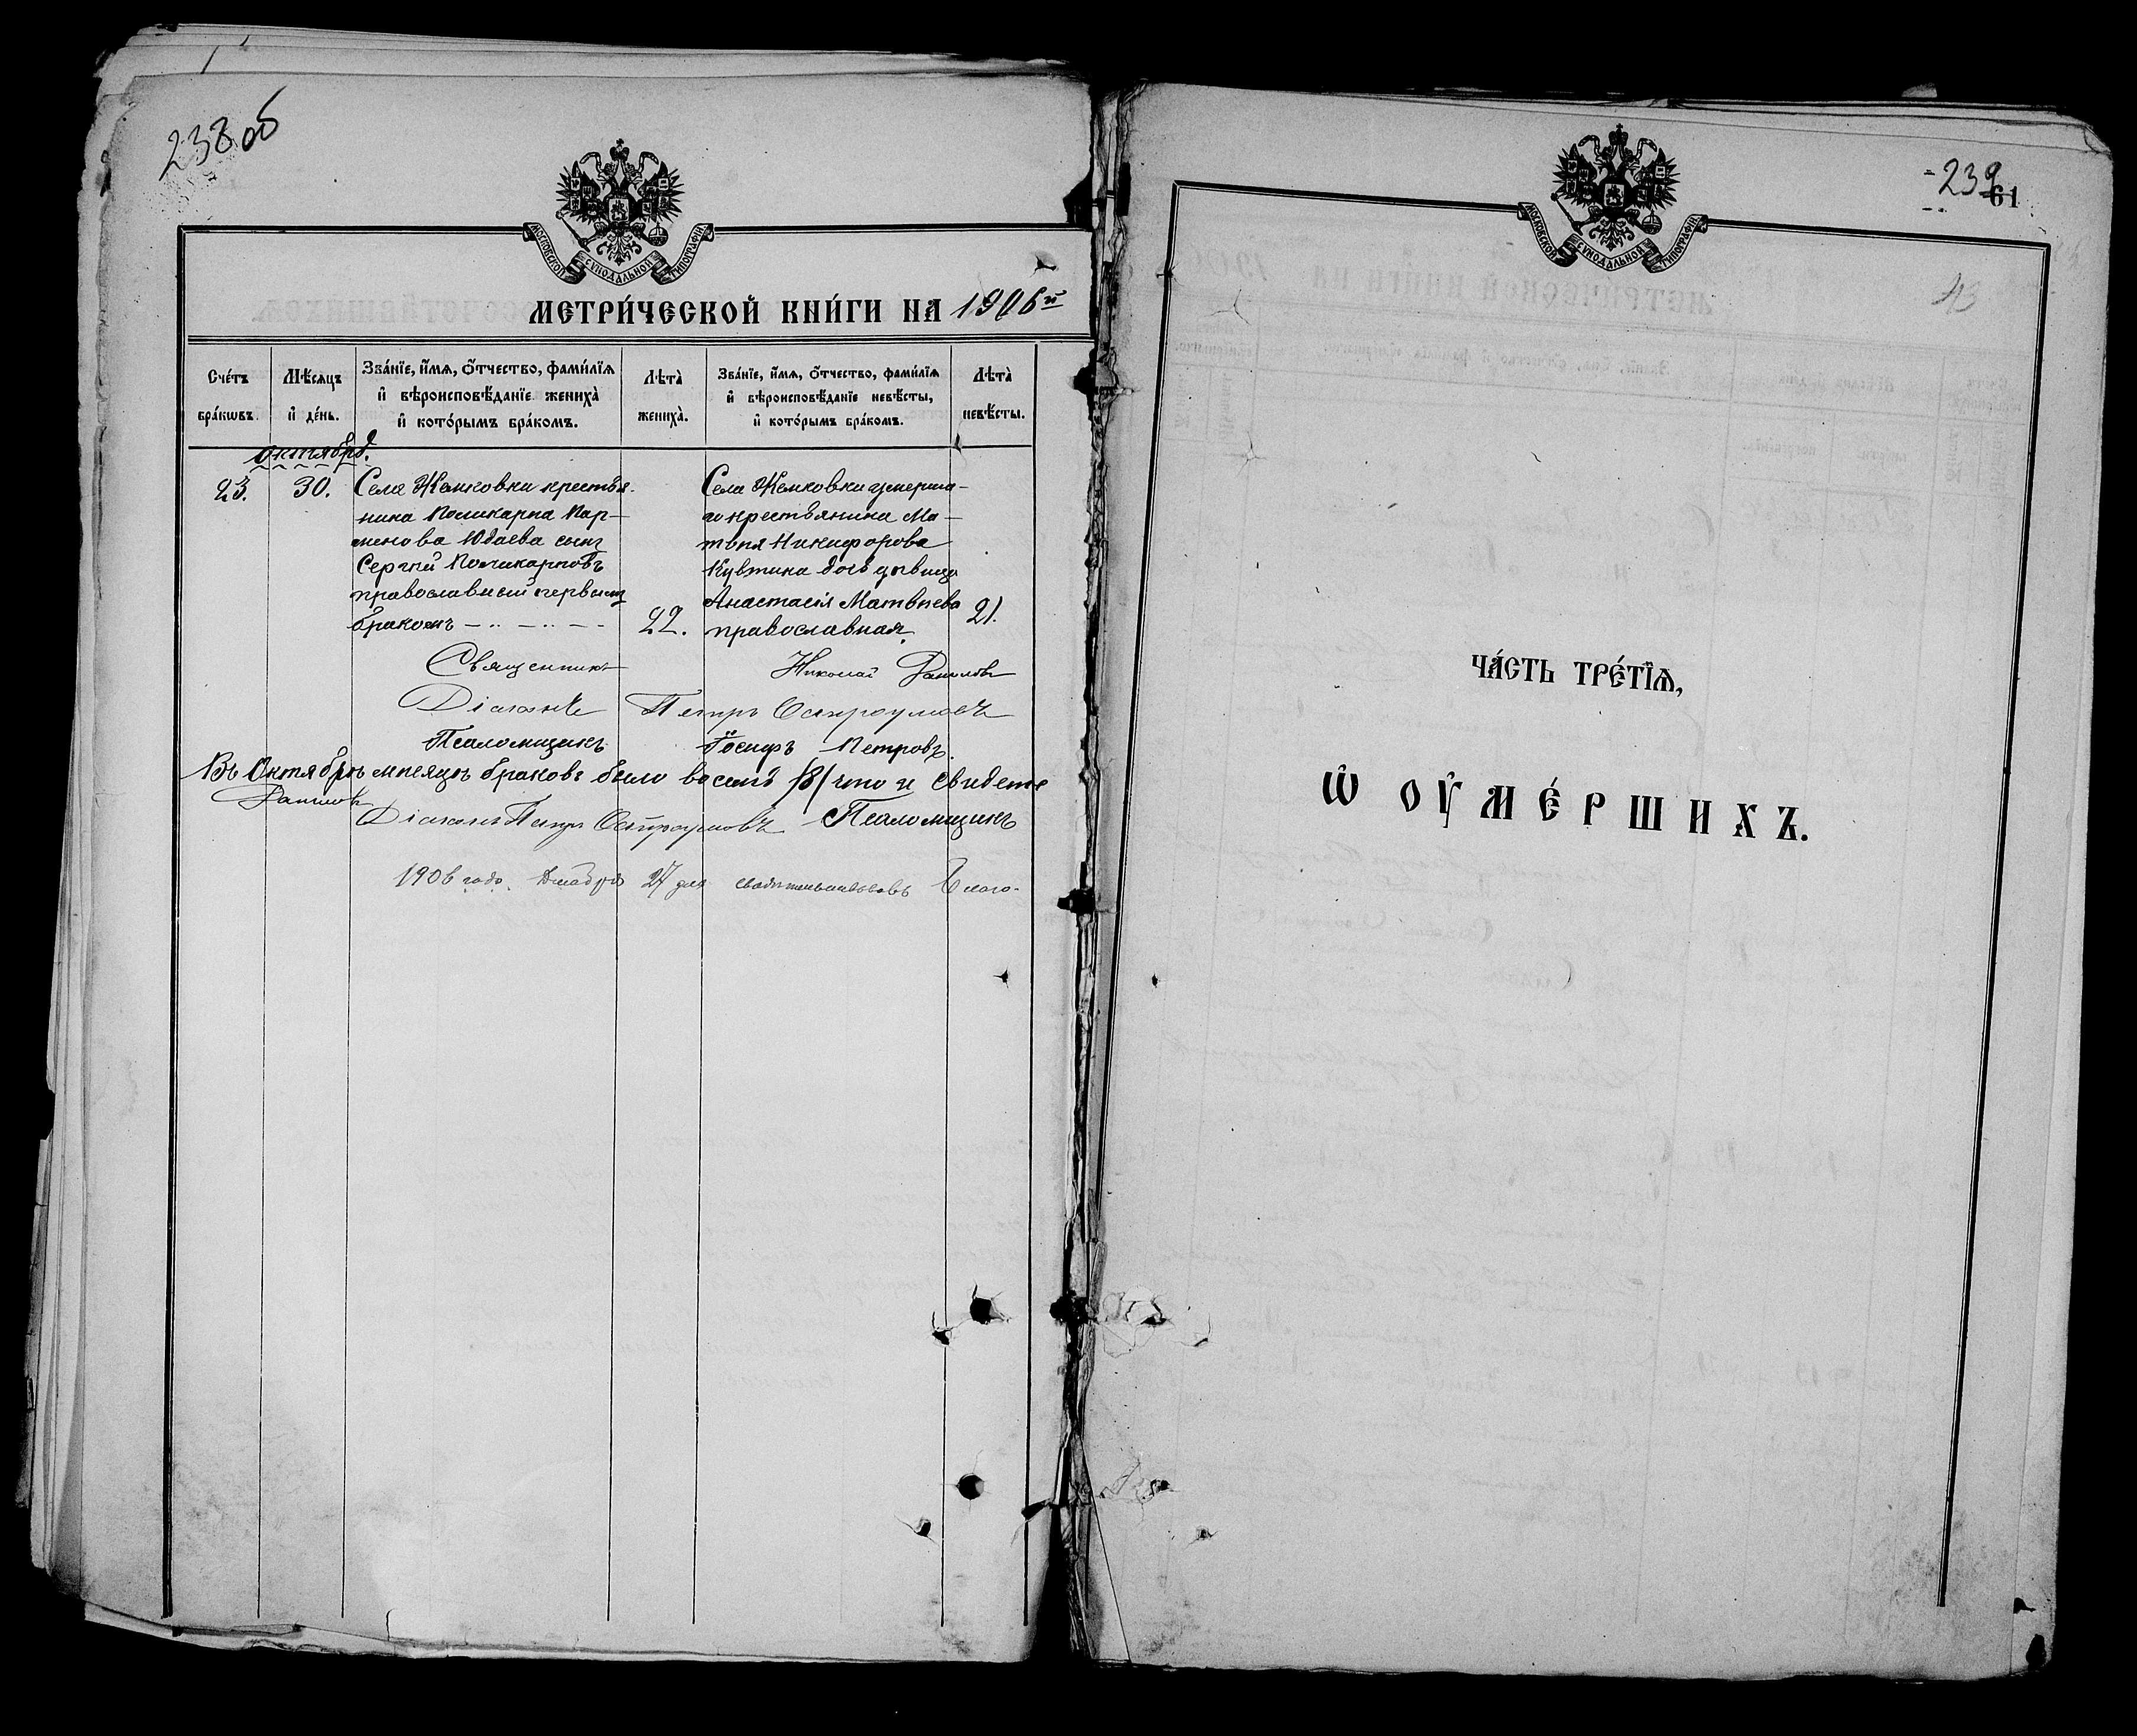 238 об
МОСКОВСКОЙ СѴНОДАЛЬНОЙ ТИПОГРАФІИ
МЕТРИ́ЧЕСКОЙ КНИ́ГИ НА 1906й
Сче́тъ бра́кωвъ.
Мѣ́сяцъ и҆ де́нь.
Зва́нїе, и҆́мѧ, ѻ҆́тчество, фами́лїѧ
и҆ вѣроисповѣ́данїе жениха̀
и҆ кото́рымъ бра́комъ.
Лѣта̀ жениха̀.
Зва́нїе, и҆́мѧ, ѻ҆́тчество, фами́лїѧ
и҆ вѣроисповѣ́данїе невѣ́сты,
и҆ кото́рымъ бра́комъ.
Лѣта̀ невѣ́сты.
Октября.
23.
30.
Села Жемковки крестья-
нина Поликарпа Пар-
менова Юдаева сынъ
Сергѣй Поликарповъ
православный первымъ
бракомъ
22.
Села Жемковки умерша-
го крестьянина Ма-
твѣя Никифорова
дочь дѣвица
Анастасія Матвѣева
православная.
21.
Священникъ Николай
Діаконъ Петръ Остроумовъ
Псаломщикъ Іосифъ Петровъ.
Въ Октябрѣ мѣсяцѣ браковъ было восемь /8/ что и свидете
Діаконъ Петръ Остроумовъ Псаломщикъ
1906 года Декабря 27 дня свидѣтельствовалъ Благо-
239
61
43
МОСКОВСКОЙ СѴНОДАЛЬНОЙ ТИПОГРАФІИ
ЧА́СТЬ ТРЕ́ТЇѦ,
Ѡ҆ ОУ҆МЕ́РШИХЪ.